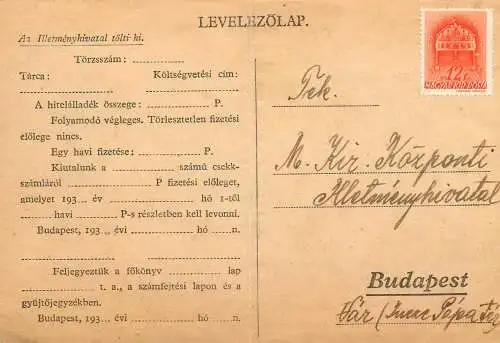 LEVELEZŐLAP.
Az Illetményhivatal tölti ki.
Törzsszám:
Tárca: Költségvetési cím:
A hitelálladék összege: P.
Folyamodó végleges. Törlesztetlen fizetési
előlege nincs.
Egy havi fizetése: P.
Kiutalunk a számú csekk-
számláról P fizetési előleget,
amelyet 193... évi hó 1-től
havi P-s részletben kell levonni.
Budapest, 193... évi hó n.
Feljegyeztük a főkönyv lap
t. a., a számfejtési lapon és a
gyüjtőjegyzékben.
Budapest, 193... évi hó n.
12f
MAGYAR POSTA
Tek.
M. Kir. Központi
Illetményhivatal
Budapest
Vár (Imre Pápa